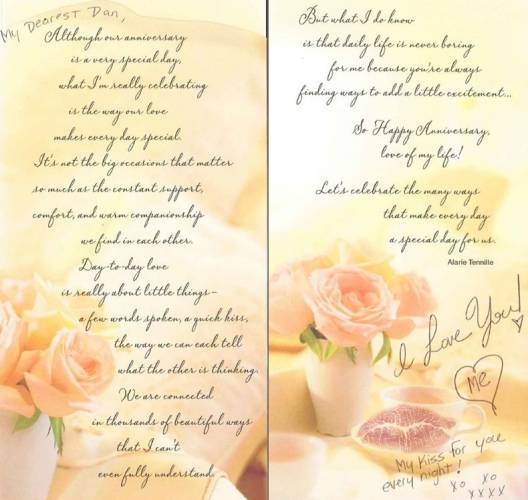 My Dearest Dan,
Although our anniversary
is a very special day,
what I'm really celebrating
is the way our love
makes every day special.
It's not the big occasions that matter
so much as the constant support,
comfort, and warm companionship
we find in each other.
Day-to-day love
is really about little things–
a few words spoken, a quick kiss,
the way we can each tell
what the other is thinking.
We are connected
in thousands of beautiful ways
that I can't
even fully understand.
But what I do know
is that daily life is never boring
for me because you're always
finding ways to add a little excitement...
So Happy Anniversary,
love of my life!
Let's celebrate the many ways
that make every day
a special day for us.
Alarie Tennille
I Love You!
Me
My Kiss for you
every night!
xo xo
xxxx